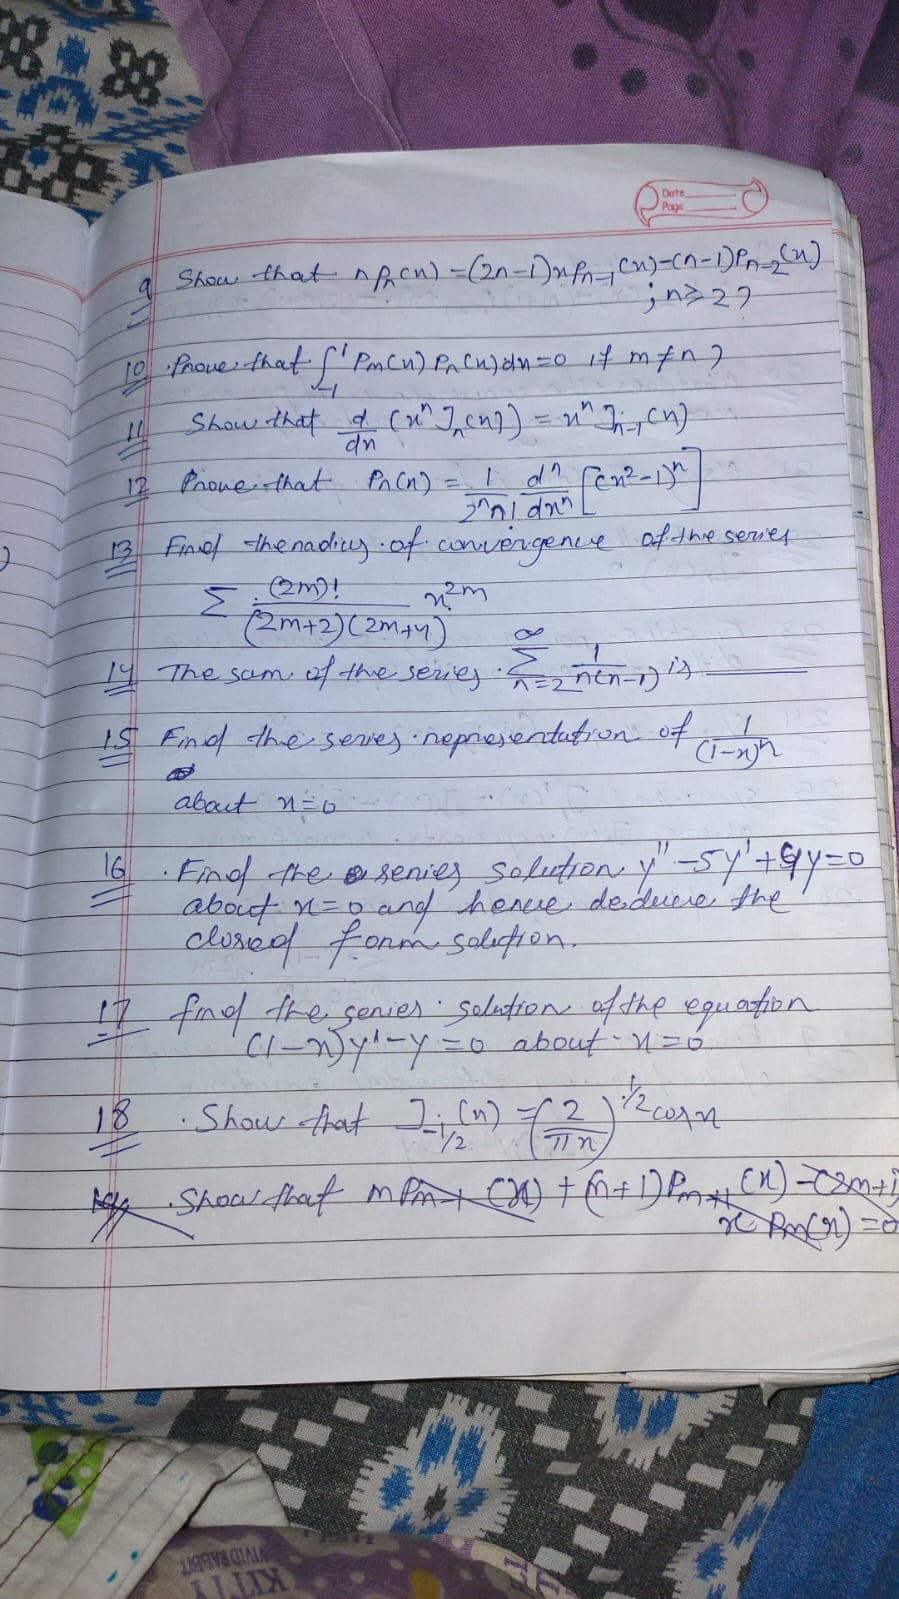 Date
Page
9 Show that nPn(x) = (2n-1)xPn-1(x)-(n-1)Pn-2(x)
; n≥2?
10 Prove that ∫¹₋₁ Pm(x) Pn(x)dx=0 if m≠n?
11 Show that d/dx (xⁿJn(x)) = xⁿ Jn-1(x)
12 Prove that Pn(x) = 1/2ⁿn! dⁿ/dxⁿ [(x²-1)ⁿ]
13 Find the radius of convergence of the series
Σ (2m)!/(2m+2)(2m+4) x^2m
14 The sum of the series ∞Σn=2 1/n(n-1) is
15 Find the series representation of 1/(1-x)ⁿ
about x=0
16 Find the series solution y''-5y'+9y=0
about x=0 and hence deduce the
closed form solution.
17 find the series solution of the equation
(1-x)y'-y=0 about x=0
18 Show that J-1/2(x) = (2/πx)^1/2 cosx
19 Show that mPm-1(x) + (m+1)Pm+1(x)-(2m+1)
x Pm(x)=0
KITTY
VIVID RABBIT